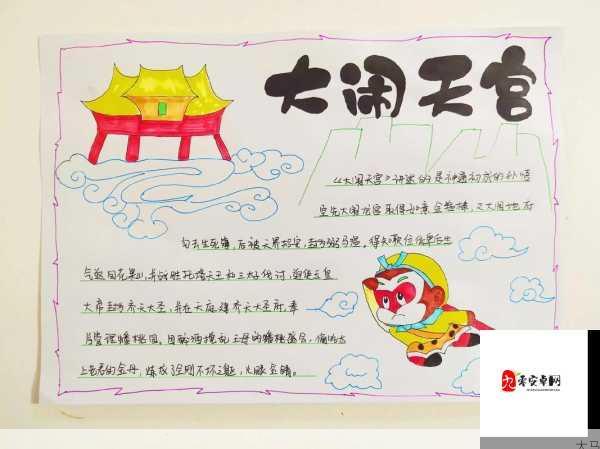 大闹天宫
《大闹天宫》讲述的是神通初成的孙悟
空先大闹龙宫取得如意金箍棒，又大闹地府
勾去生死簿，后被天界招安，封为弼马温。得知职位低卑后生
气返回花果山，并战胜托塔天王和三太子
大帝封为齐天大圣，并在天庭建齐天大圣府，奉
管理蟠桃园，因醉酒搅乱王母的蟠桃盛会，偷吃太
上老君的金丹，炼成了金刚不坏之躯，火眼金睛。
九零安卓网
大马